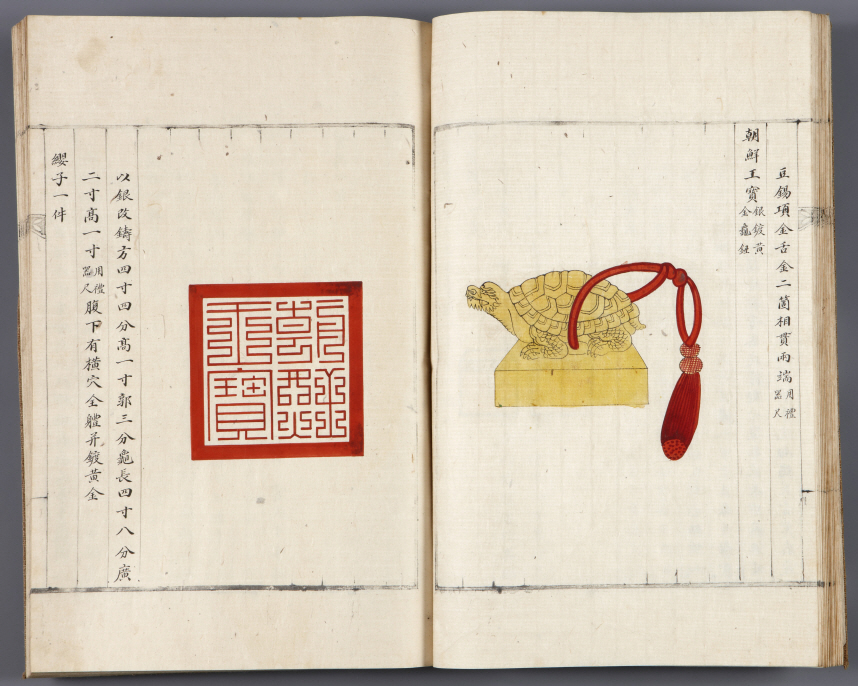 豆錫項金舌金二箇相貫兩端用禮器尺
朝鮮王寶銀鍍黃金龜鈕
朝鮮
王寶
以銀改鑄方四寸四分高一寸郭三分龜長四寸八分廣
二寸高一寸用禮器尺腹下有橫穴全體并鍍黃金
纓子一件